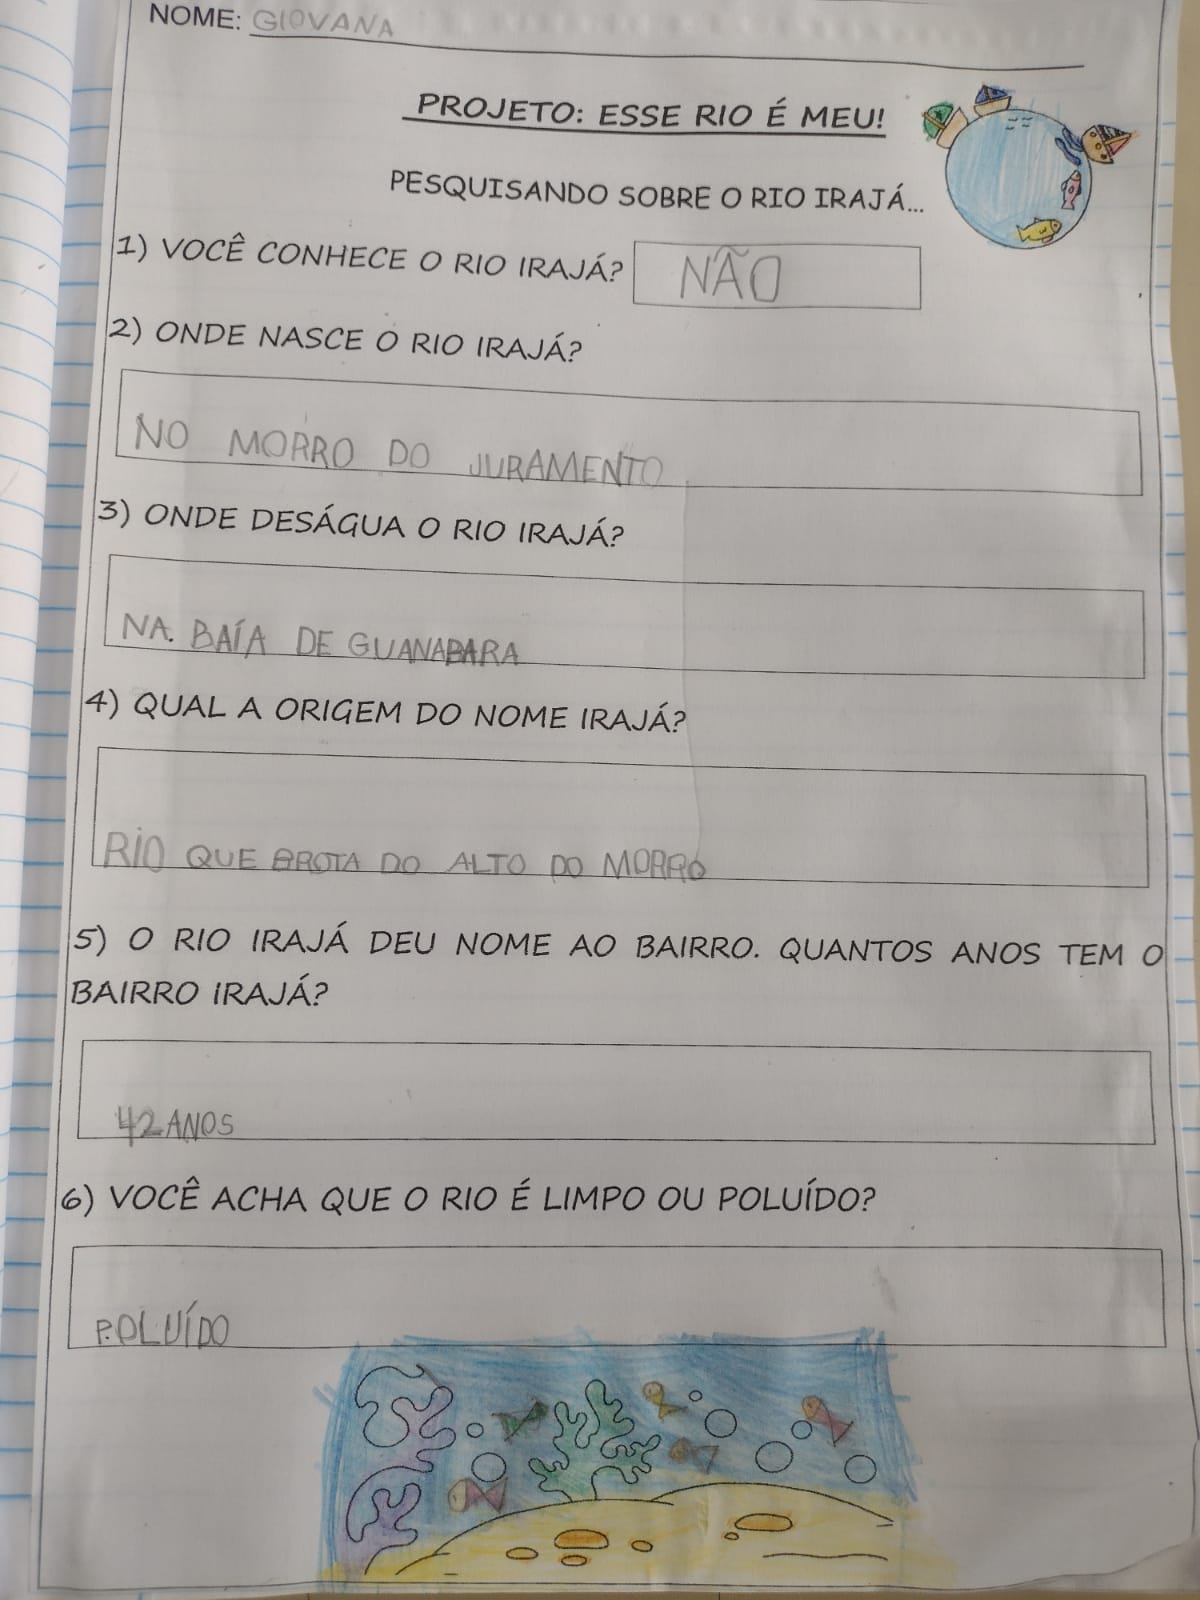 NOME: GIOVANA
PROJETO: ESSE RIO É MEU!
PESQUISANDO SOBRE O RIO IRAJÁ...
1) VOCÊ CONHECE O RIO IRAJÁ? NÃO
2) ONDE NASCE O RIO IRAJÁ?
NO MORRO DO JURAMENTO
3) ONDE DESÁGUA O RIO IRAJÁ?
NA. BAÍA DE GUANABARA
4) QUAL A ORIGEM DO NOME IRAJÁ?
RIO QUE BROTA DO ALTO DO MORRO
5) O RIO IRAJÁ DEU NOME AO BAIRRO. QUANTOS ANOS TEM O
BAIRRO IRAJÁ?
42 ANOS
6) VOCÊ ACHA QUE O RIO É LIMPO OU POLUÍDO?
POLUÍDO